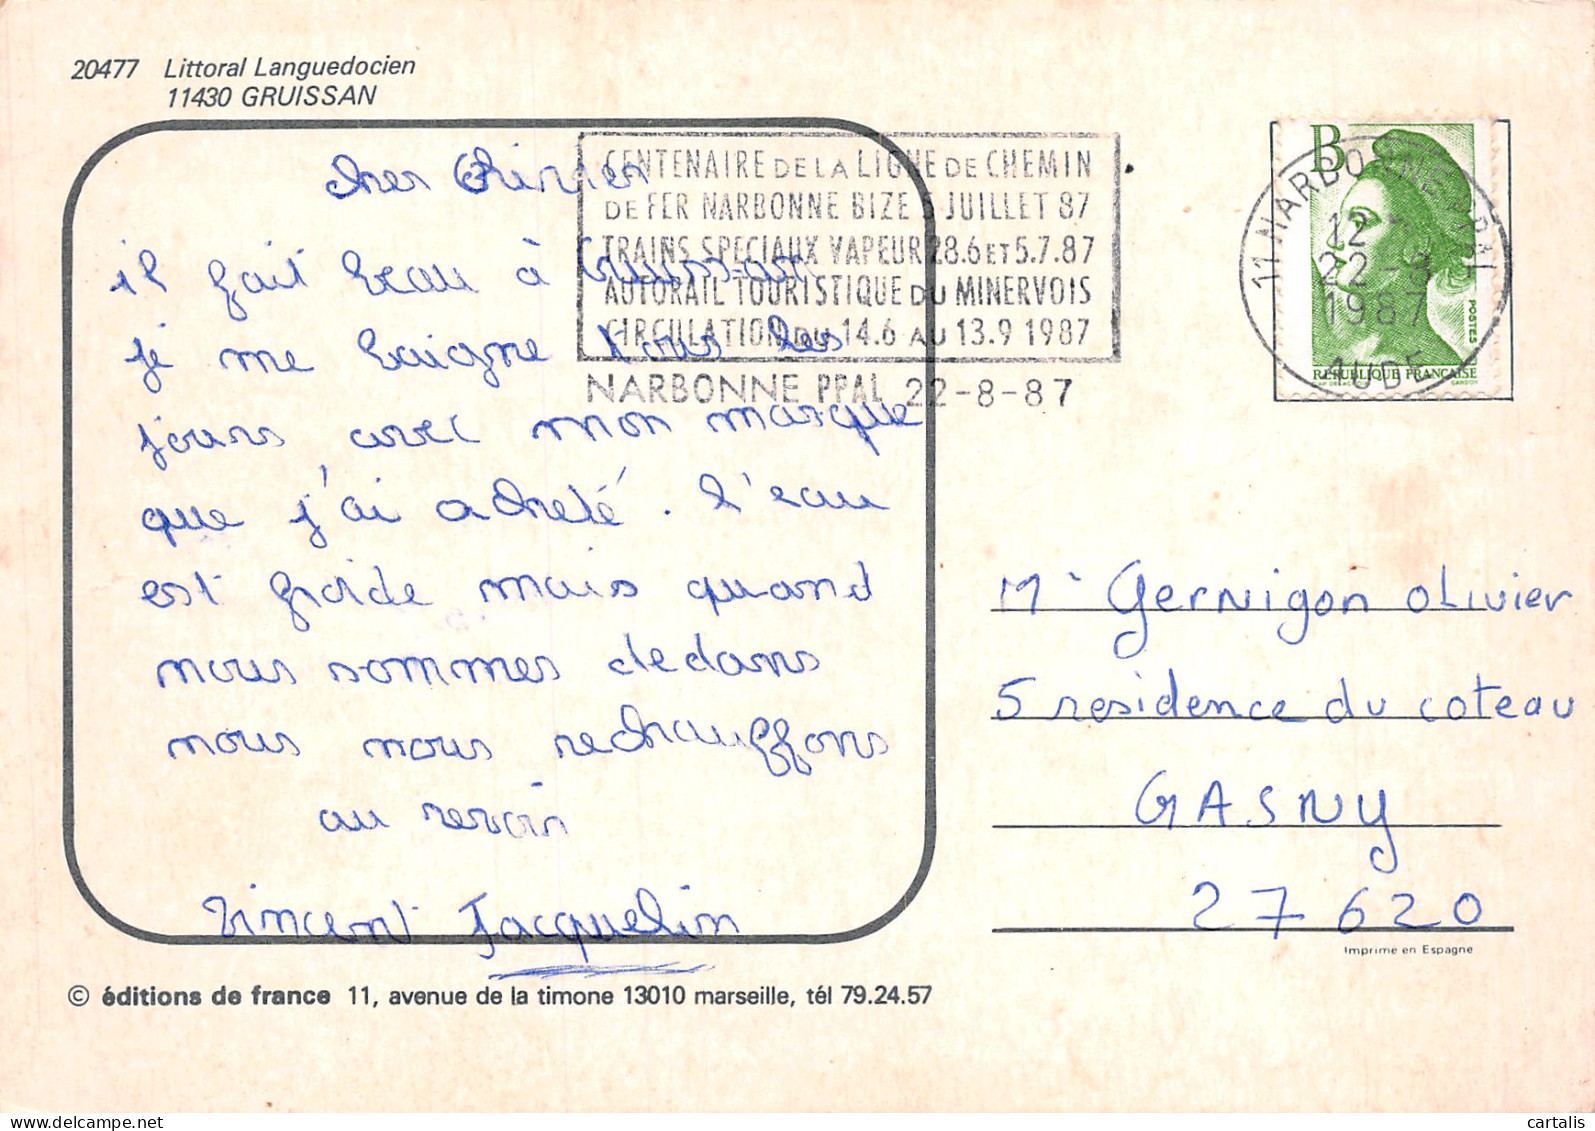 20477 Littoral Languedocien
11430 GRUISSAN
CENTENAIRE DE LA LIGNE DE CHEMIN
DE FER NARBONNE BIZE 5 JUILLET 87
TRAINS SPECIAUX VAPEUR 28.6 ET 5.7.87
AUTORAIL TOURISTIQUE DU MINERVOIS
CIRCULATION DU 14.6 AU 13.9 1987
NARBONNE PPAL 22-8-87
B
11 NARBONNE PPAL
12
22-8
1987
AUDE
POSTES
REPUBLIQUE FRANÇAISE
GANDON
cher Olivier
il fait beau à Gruissan
je me baigne tous les
jours avec mon masque
que j'ai acheté. L'eau
est froide mais quand
nous sommes dedans
nous nous rechauffons
au revoir
Vincent Jacquelin
Mr Gernigon Olivier
5 residence du coteau
GASNY
27620
Imprimé en Espagne
© éditions de france 11, avenue de la timone 13010 marseille, tél 79.24.57
cartalis